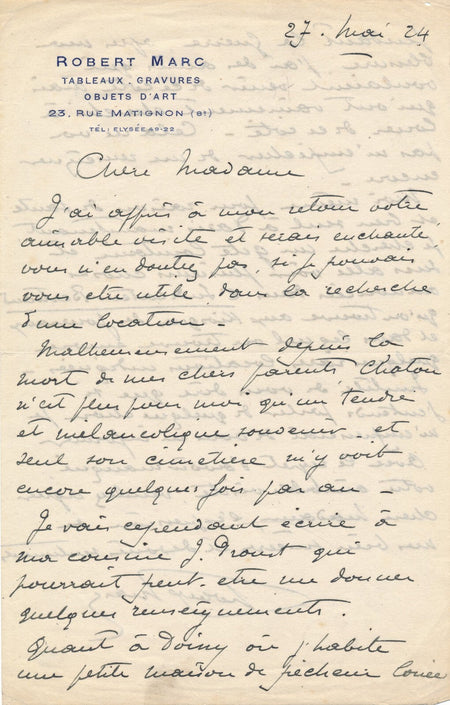 27. Mai 24
ROBERT MARC
TABLEAUX . GRAVURES
OBJETS D'ART
23, RUE MATIGNON (8e)
TÉL: ELYSÉE 49-22
Chère Madame
J'ai appris à mon retour votre
aimable visite et serais enchanté,
vous n'en doutez pas, si je pouvais
vous être utile dans la recherche
d'une location -
Malheureusement depuis la
mort de mes chers parents, Chatou
n'est plus pour moi qu'un tendre
et mélancolique souvenir et
seul son cimetière m'y voit
encore quelques fois par an -
Je vais cependant écrire à
ma cousine J. Proust qui
pourrait peut-être me donner
quelques renseignements.
Quant à où j'habite
une petite maison de pêcheur louée